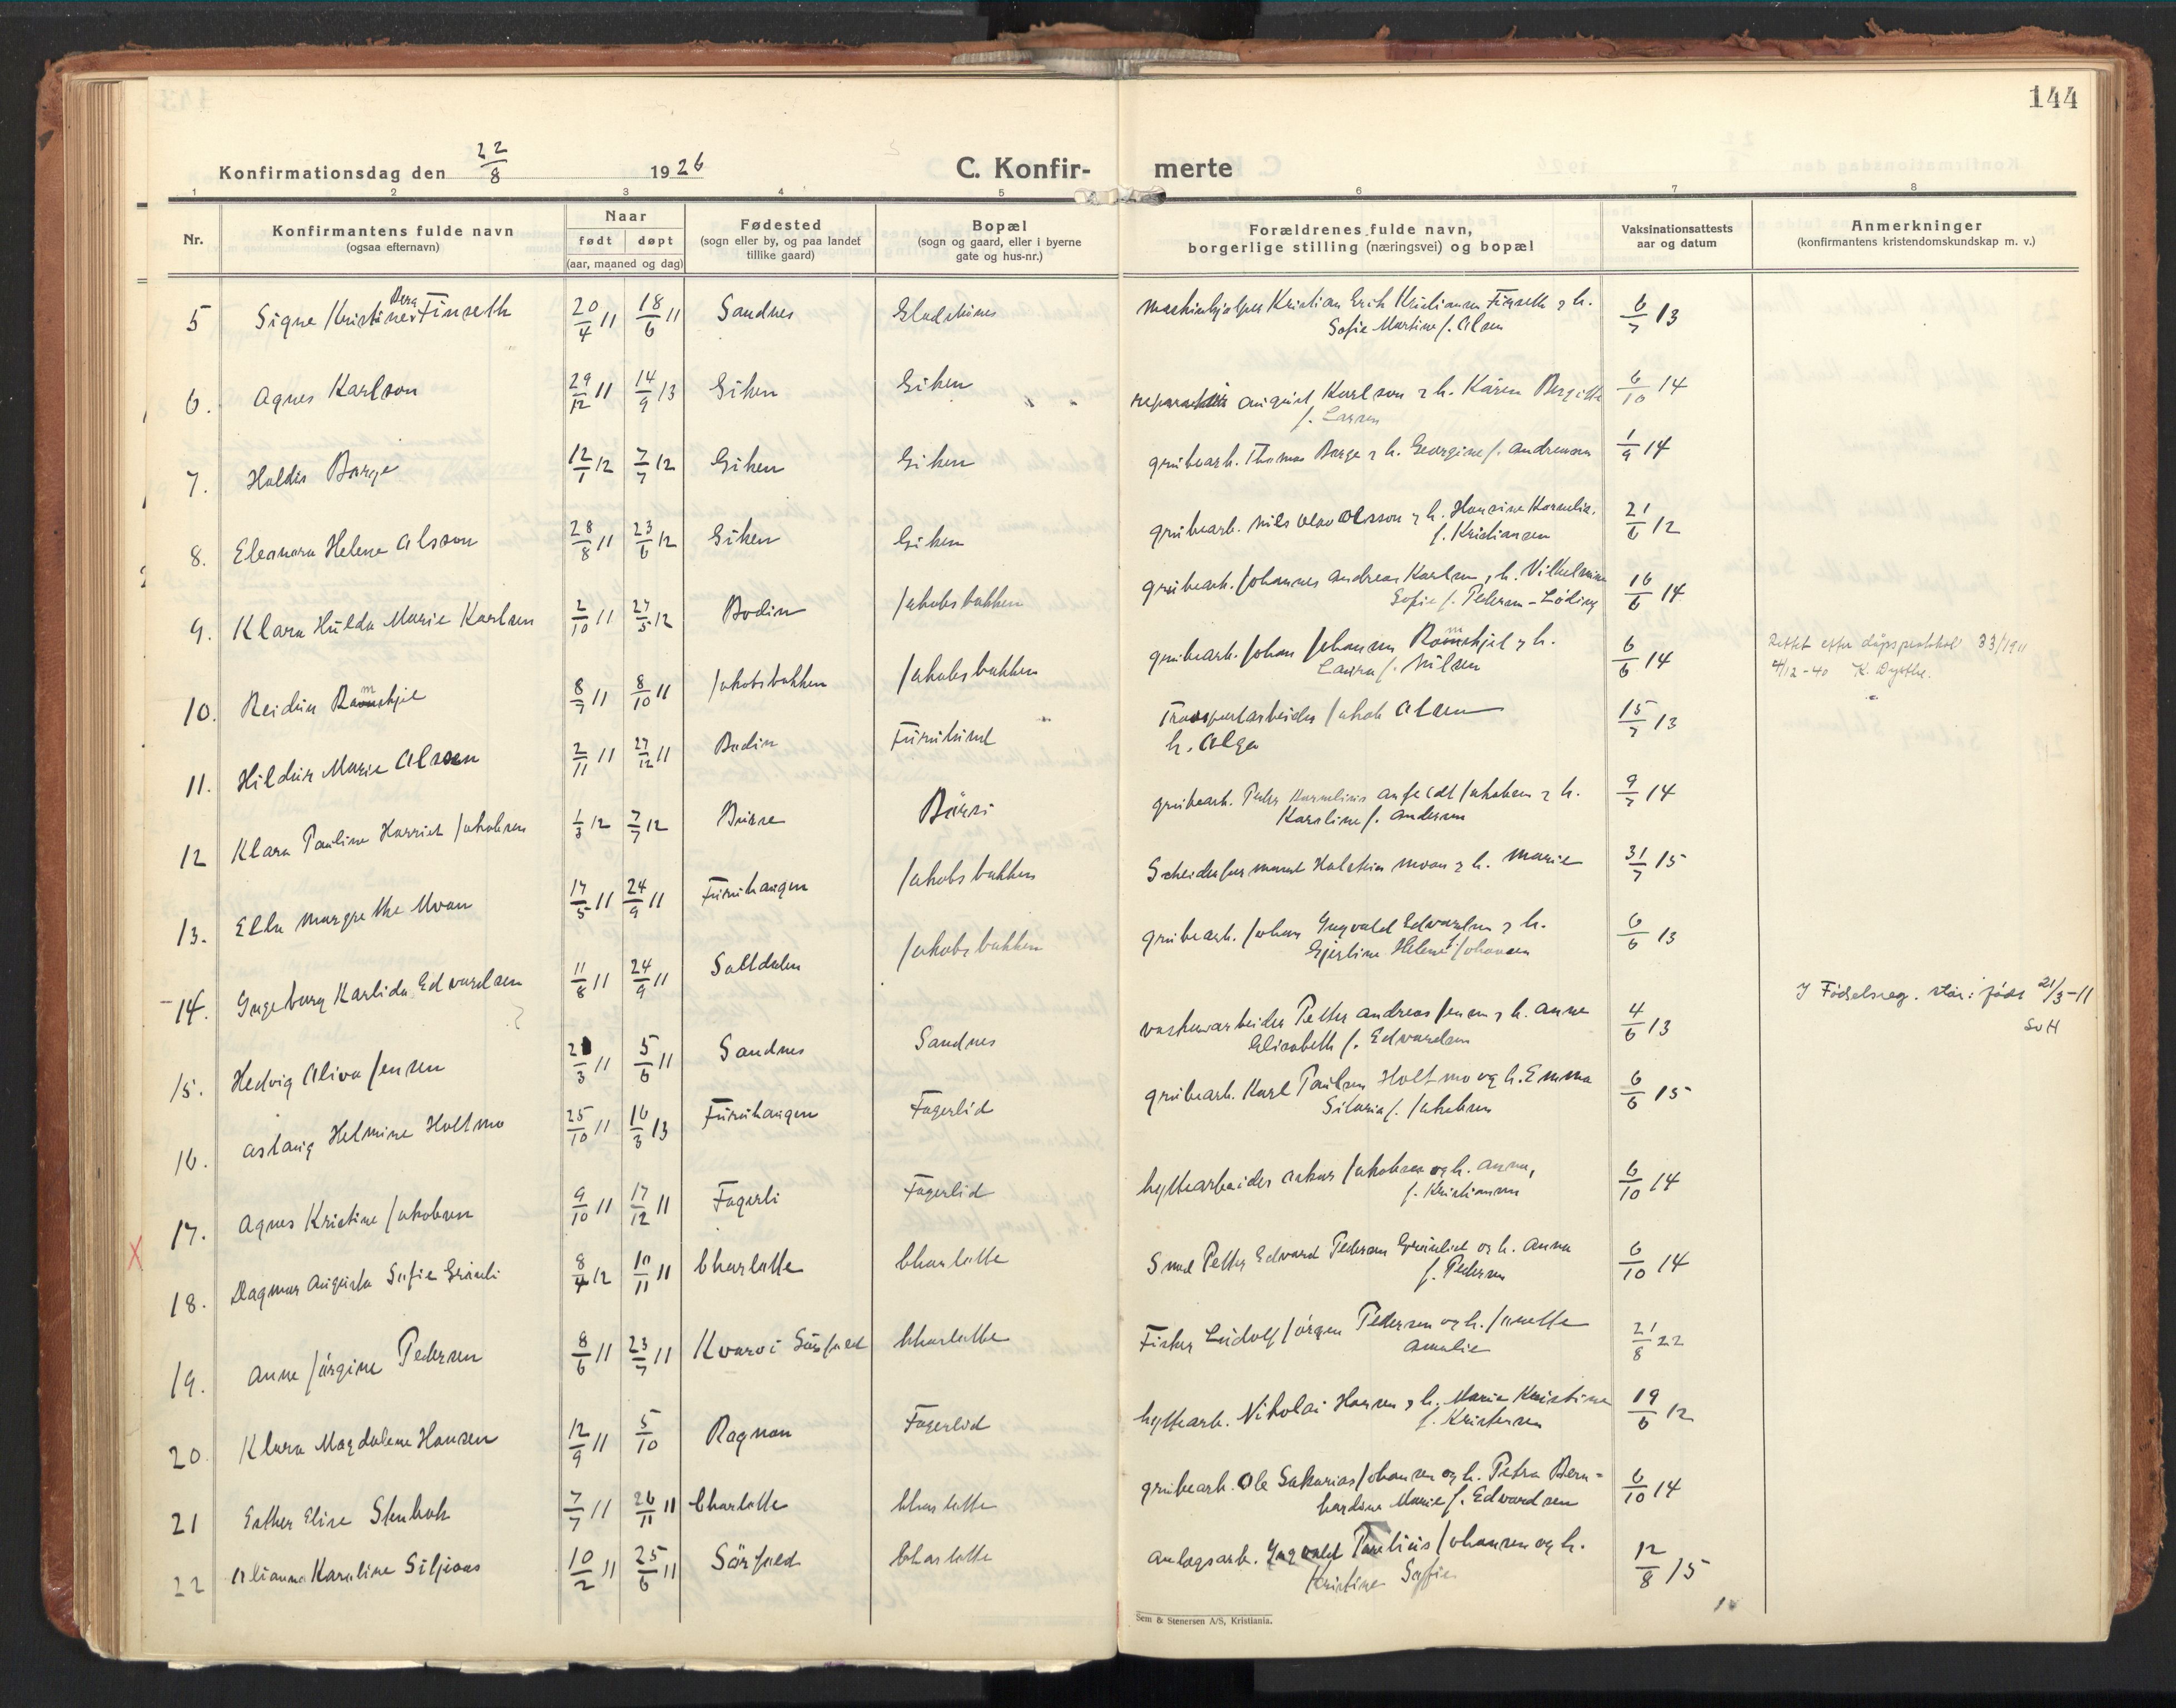 144
Konfirmationsdag den 22/8 1926 C. Konfir- merte
1 2 3 4 5 6 7 8
Nr. Konfirmantens fulde navn (ogsaa efternavn) Naar født døpt (aar, maaned og dag) Fødested (sogn eller by, og paa landet tillike gaard) Bopæl (sogn og gaard, eller i byerne gate og hus-nr.) Forældrenes fulde navn, borgerlige stilling (næringsvei) og bopæl Vaksinationsattests aar og datum Anmerkninger (konfirmantens kristendomskundskap m. v.)
5 Signe Kristine Berg Finseth 20/4 11 18/6 11 Sandnes Kristian Erik Kristiansen Finseth & h. 6/7 13
Sofie Martine f. Olsen
6. Agnes Karlson 29/12 11 14/9 13 Giken Giken August Karlson & h. Karen Bergitte 6/10 14
f. Larsen
7. Haldis Borge 12/1 12 7/7 12 Giken Giken grubearb. Thomas Borge & h. Georgine f. Andreasen 1/9 14
8. Eleonora Helene Olsson 28/8 11 23/6 12 Giken Giken grubearb. Nils Olav Olsson & h. Hansine Kornelia 21/6 12
f. Kristiansen
9. Klara Hulda Marie Karlsen 2/10 11 27/5 12 Bodin Jakobsbakken grubearb. Johannes Andreas Karlsen & h. Vilhelmine 16/6 14
Sofie f. Pedersen - Löding
10. Reidun Jakobsbakken 8/7 11 8/10 11 Jakobsbakken grubearb. Johan Johansen & h. 6/6 14 Rettet efter dåpsprotokol 33/1911
Laura f. Nilsen 4/12-40 K.
11. Hildur Marie Olsen 2/11 11 27/12 11 Bodin Furulund Transportarbeider Jakob Olsen 15/7 13
h. Olga
12 Klara Pauline Harriet Jakobsen 1/3 12 7/7 12 Bursi grubearb. Peder Kornelius Jakobsen & h. 9/7 14
Karoline f. Andersen
13. Ella Margrethe Moan 17/5 11 24/9 11 Furuhaugen Jakobsbakken Moan & h. Marie 31/7 15
14. Ingeborg Karlida Edvardsen 11/8 11 24/9 11 Saltdalen Jakobsbakken grubearb. Johan Ingvald Edvardsen & h. 6/6 13
Gjertine Helene f. Johansen
15. Hedvig Oliva Jensen 21/3 11 5/6 11 Sandnes Sandnes vaskeriarbeider Petter Andreas Jensen & h. Anne 4/6 13 I Födselsreg. står: född 21/3-11
Elisabeth f. Edvardsen SvH
16. Aslaug Helmine Holtmo 25/10 11 16/3 13 Furuhaugen Fagerlid grubearb. Karl Paulsen Holtmo og h. Emma 6/6 15
f. Jakobsen
17. Agnes Kristine Jakobsen 9/10 11 17/12 11 Fagerli Fagerlid hyttearbeider Jakobsen og h. Anna, 6/10 14
f. Kristiansen
18. Dagmar Augusta Sofie Grönli 8/4 12 10/11 11 Charlotte Charlotte Smed Petter Edvard Pedersen Grönlid og h. Anna 6/10 14
f. Pedersen
19. Anne Jörgine Pedersen 8/6 11 23/7 11 Kvarv i Sörfold Charlotte Fisker Ludolf Jörgen Pedersen og h. Janette 21/8 22
Amalie
20 Klara Magdalene Hansen 12/9 11 5/10 Rognan Fagerlid hyttearb. Nikolai Hansen & h. Marie Kristine 19/6 12
f. Kristensen
21 Esther Elise Stenbak 7/7 11 26/11 11 Charlotte Charlotte grubearb. Ole Sakarias Johansen og h. Petra Bern= 6/10 14
hardine Marie f. Edvardsen
22 Karoline Siljeaas 10/2 11 25/6 11 Sörfold Charlotte Anlagsarb. Ingvald Paulius Johansen og h. 12/8 15
Kristine Sofie
Sem & Stenersen A/S, Kristiania.